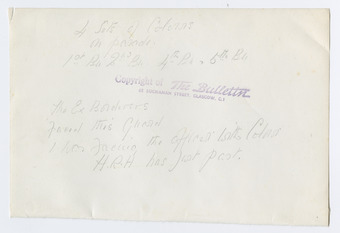 4 Sets of Colours
on parade.
1st Bn 2nd Bn 4th Bn 5th Bn
Copyright of The Bulletin
BUCHANAN STREET, GLASGOW, C.1
The Ex Borderers
found this Guard
I was facing the officers with Colours
H.R.H has just past.